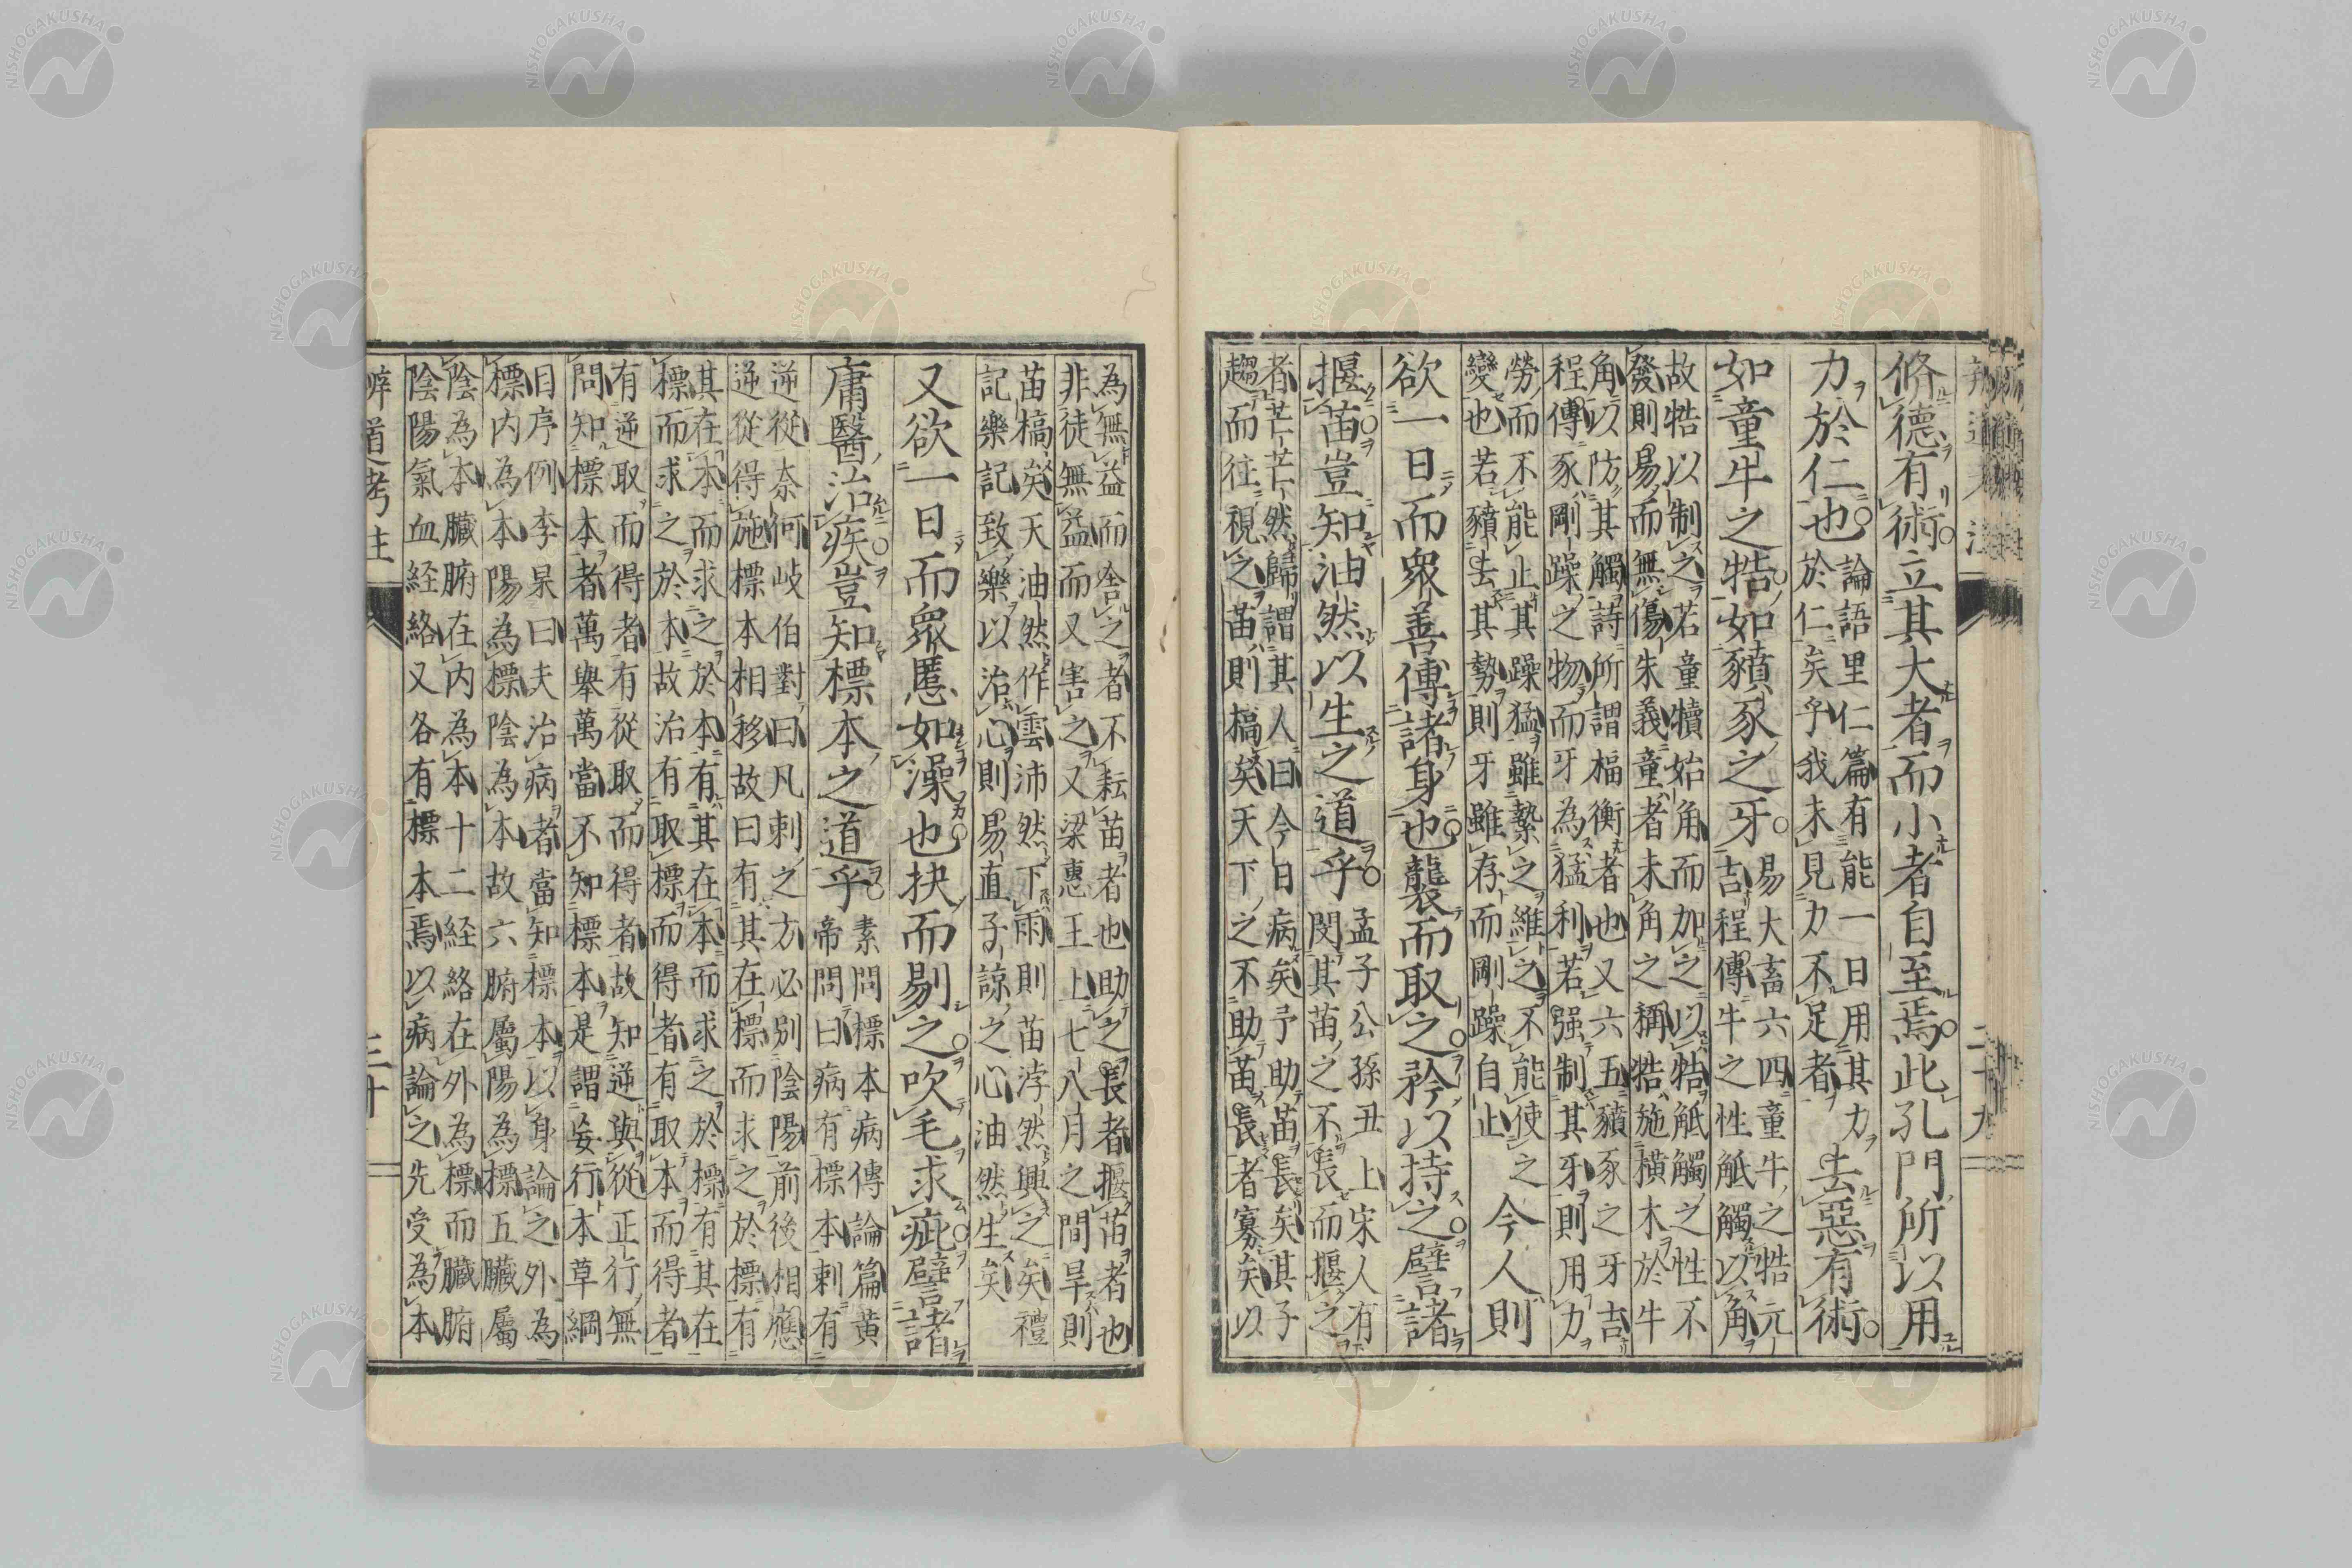 脩德有術立其大者而小者自至焉此孔門所以用
力於仁也
論語里仁篇有能一日用其力
於仁矣乎我未見力不足者
去惡有術
如童牛之牿如豶豕之牙
易大畜六四童牛之牿元
吉程傳牛之性觝觸以角
故牿以制之若童犢始角而加之以牿觝觸之性不
發則易而無傷朱義童者未角之稱牿施橫木於牛
角以防其觸詩所謂楅衡者也又六五豶豕之牙吉
程傳豕剛躁之物而牙為猛利若强制其牙則用力
勞而不能止其躁猛雖縶之維之不能使之
變也若豶去其勢則牙雖存而剛躁自止
今人則
欲一日而眾善傅諸身也襲而取之矜以持之譬諸
揠苗豈知油然以生之道乎
孟子公孫丑上宋人有
閔其苗之不長而揠之
者芒芒然歸謂其人曰今日病矣予助苗長矣其子
趨而往視之苗則槁矣天下之不助苗長者寡矣以
為無益而舍之者不耘苗者也助之長者揠苗者也
非徒無益而又害之又梁惠王上七八月之間旱則
苗槁矣天油然作雲沛然下雨則苗浡然興之矣禮
記樂記致樂以治心則易直子諒之心油然生矣
又欲一日而眾慝如澡也抉而剔之吹毛求疵譬諸
庸醫治疾豈知標本之道乎
素問標本病傳論篇黃
帝問曰病有標本刺有
逆從奈何岐伯對曰凡刺之方必別陰陽前後相應
逆從得施標本相移故曰有其在標而求之於標有
其在本而求之於本有其在本而求之於標有其在
標而求之於本故治有取標而得者有取本而得者
有逆取而得者有從取而得者故知逆與從正行無
問知標本者萬舉萬當不知標本是謂妄行本草綱
目序例李杲曰夫治病者當知標本以身論之外為
標內為本陽為標陰為本故六腑屬陽為標五臟屬
陰為本臟腑在內為本十二経絡在外為標而臟腑
陰陽氣血経絡又各有標本焉以病論之先受為本
辨道考注
三十